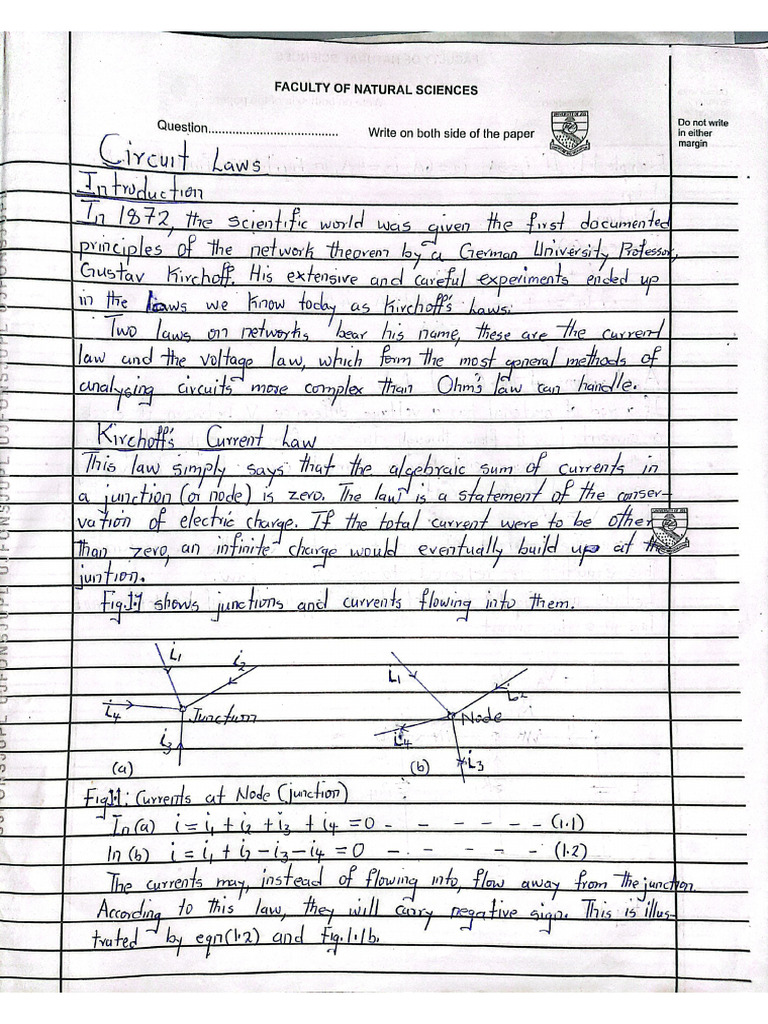 FACULTY OF NATURAL SCIENCES
Question..................................
Write on both side of the paper
Do not write
in either
margin
Circuit Laws
Introduction
In 1872, the scientific world was given the first documented
principles of the network theorem by a German University Professor,
Gustav Kirchoff. His extensive and careful experiments ended up
in the laws we know today as Kirchoff's Laws.
Two laws on networks bear his name, these are the current
law and the voltage law, which form the most general methods of
analysing circuits more complex than Ohm's law can handle.
Kirchoff's Current Law
This law simply says that the algebraic sum of currents in
a junction (or node) is zero. The law is a statement of the conser-
vation of electric charge. If the total current were to be other
than zero, an infinite charge would eventually build up at the
juntion.
Fig.1.1 shows junctions and currents flowing into them.
i1 i2 i4 Junction i3 (a)
i1 i2 Node i4 i3 (b)
Fig1.1: Currents at Node (junction)
In (a) i = i1 + i2 + i3 + i4 = 0 - - - - - - (1.1)
In (b) i = i1 + i2 - i3 - i4 = 0 - - - - - (1.2)
The currents may, instead of flowing into, flow away from the junction.
According to this law, they will carry negative sign. This is illus-
trated by eqn(1.2) and Fig.1.1b.